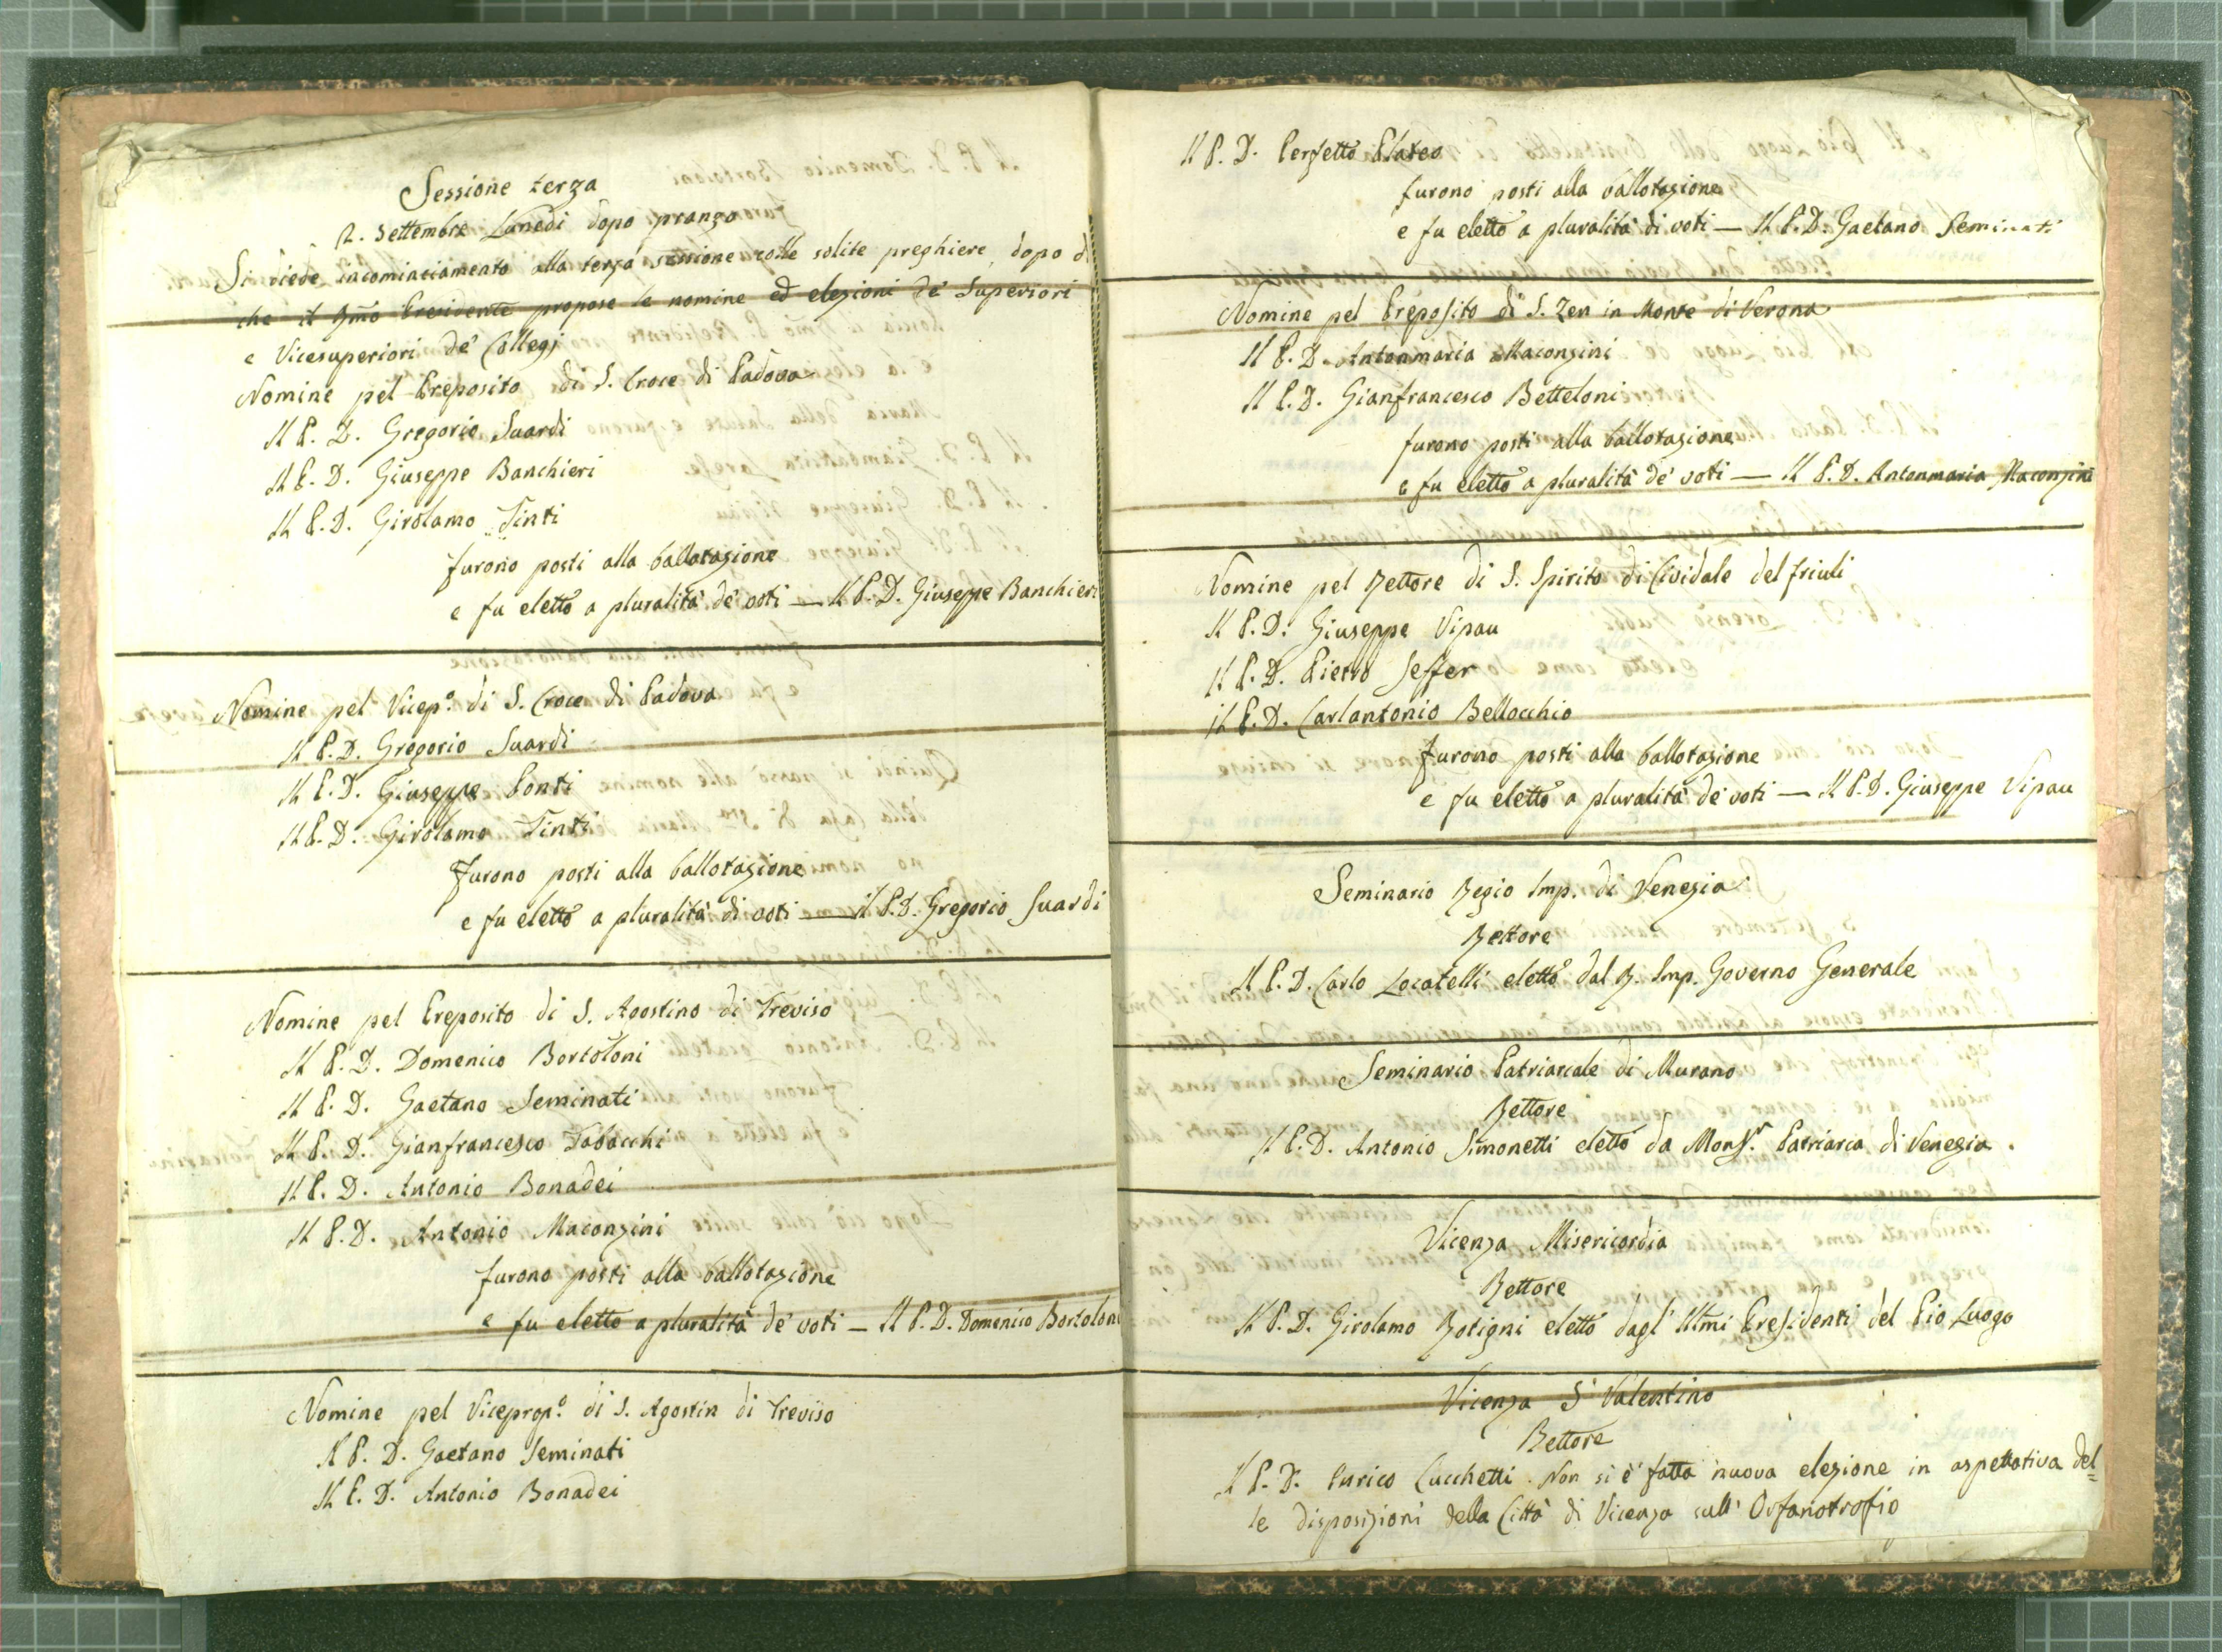 Sessione terza
2. Settembre Lunedi dopo pranzo
Si diede incominciamento alla terza sessione colle solite preghiere, dopo di
che il Rmo Presidente propose le nomine ed elezioni de' Superiori
e Vicesuperiori de' Collegj
Nomine pel Preposito di S. Croce di Padova
Il P. D. Gregorio Suardi
Il P. D. Giuseppe Banchieri
Il P. D. Girolamo Tinti
furono posti alla ballotazione
e fu eletto a pluralità de' voti — Il P. D. Giuseppe Banchieri
Nomine pel Vicep.º di S. Croce di Padova
Il P. D. Gregorio Suardi
Il P. D. Giuseppe Ponti
Il P. D. Girolamo Tinti
furono posti alla ballotazione
e fu eletto a pluralità di voti — il P. D. Gregorio Suardi
Nomine pel Preposito di S. Agostino di Treviso
Il P. D. Domenico Bortoloni
Il P. D. Gaetano Seminati
Il P. D. Gianfrancesco Tabacchi
Il P. D. Antonio Bonadei
Il P. D. Antonio Maconzini
furono posti alla ballotazione
e fu eletto a pluralità de' voti — Il P. D. Domenico Bortoloni
Nomine pel Viceprop.º di S. Agostin di Treviso
Il P. D. Gaetano Seminati
Il P. D. Antonio Bonadei
Il P. D. Perfetto Plateo
furono posti alla ballotazione
e fu eletto a pluralità di voti — Il P. D. Gaetano Seminati
Nomine pel Preposito di S. Zen in Monte di Verona
Il P. D. Antonmaria Maconzini
Il P. D. Gianfrancesco Betteloni
furono posti alla ballotazione
e fu eletto a pluralità de' voti — Il P. D. Antonmaria Maconzini
Nomine pel Rettore di S. Spirito di Cividale del friuli
Il P. D. Giuseppe Vipau
Il P. D. Pietro Seffer
Il P. D. Carlantonio Bellocchio
furono posti alla ballotazione
e fu eletto a pluralità de' voti — Il P. D. Giuseppe Vipau
Seminario Regio Imp. di Venezia
Rettore
Il P. D. Carlo Locatelli eletto dal R. Imp. Governo Generale
Seminario Patriarcale di Murano
Rettore
Il P. D. Antonio Simonetti eletto da Monsr. Patriarca di Venezia.
Vicenza Misericordia
Rettore
Il P. D. Girolamo Rotigni eletto dagl' Illmi Presidenti del Pio Luogo
Vicenza S. Valentino
Rettore
Il P. D. Enrico Lucchetti. Non si è fatta nuova elezione in aspettativa del=
le disposizioni della Città di Vicenza sull' Orfanotrofio